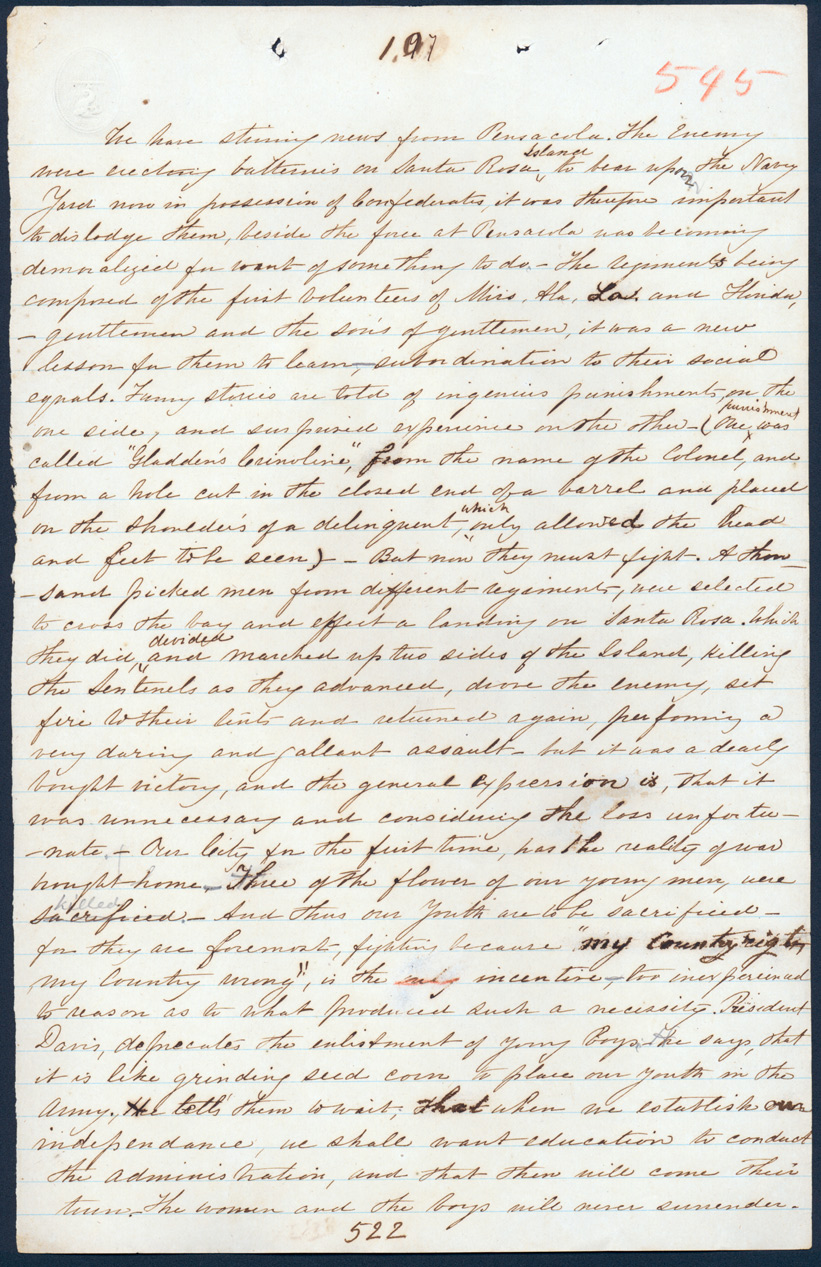 197
545
We have stirring news from Pensacola. The Enemy
were erecting batteries on Santa Rosa Island, to bear upon the Navy
Yard now in possession of Confederates, it was therefore important
to dislodge them, beside the force at Pensacola was becoming
demoralized for want of something to do - The regiments being
composed of the first volunteers of Miss, Ala, La. and Florida,
- gentlemen and the sons of gentlemen, it was a new
lesson for them to learn, - subordination to their social
equals. Funny stories are told of ingenius punishments, on the
one side, and surprised experience on the other - (One punishment was
called "Gladden's Crinoline", from the name of the Colonel, and
from a hole cut in the closed end of a barrel and placed
on the shoulders of a delinquent, which only allowed the head
and feet to be seen) - But now they must fight. A thou-
-sand picked men from different regiments, were selected
to cross the bay and effect a landing on Santa Rosa. Which
they did, divided and marched up two sides of the Island, killing
the Sentenels as they advanced, drove the enemy, set
fire to their tents and returned again, performing a
very daring and gallant assault - but it was a dearly
bought victory, and the general expression is, that it
was unnecessary and considering the loss unfortu-
-nate. - Our City for the first time, has the reality of war
brought home. - Three of the flower of our young men, were
killed
sacrificed. - And thus our Youth are to be sacrificed -
for they are foremost, fighting because "my Country right,
my Country wrong", is the only incentive, - too inexperienced
to reason as to what produced such a necessity. President
Davis, deprecates the enlistment of young boys. He says, that
it is like grinding seed corn to place our youth in the
Army. He tells them to wait; that when we establish our
independance, we shall want education to conduct
the administration, and that then will come their
turn. - The women and the boys will never surrender.
522